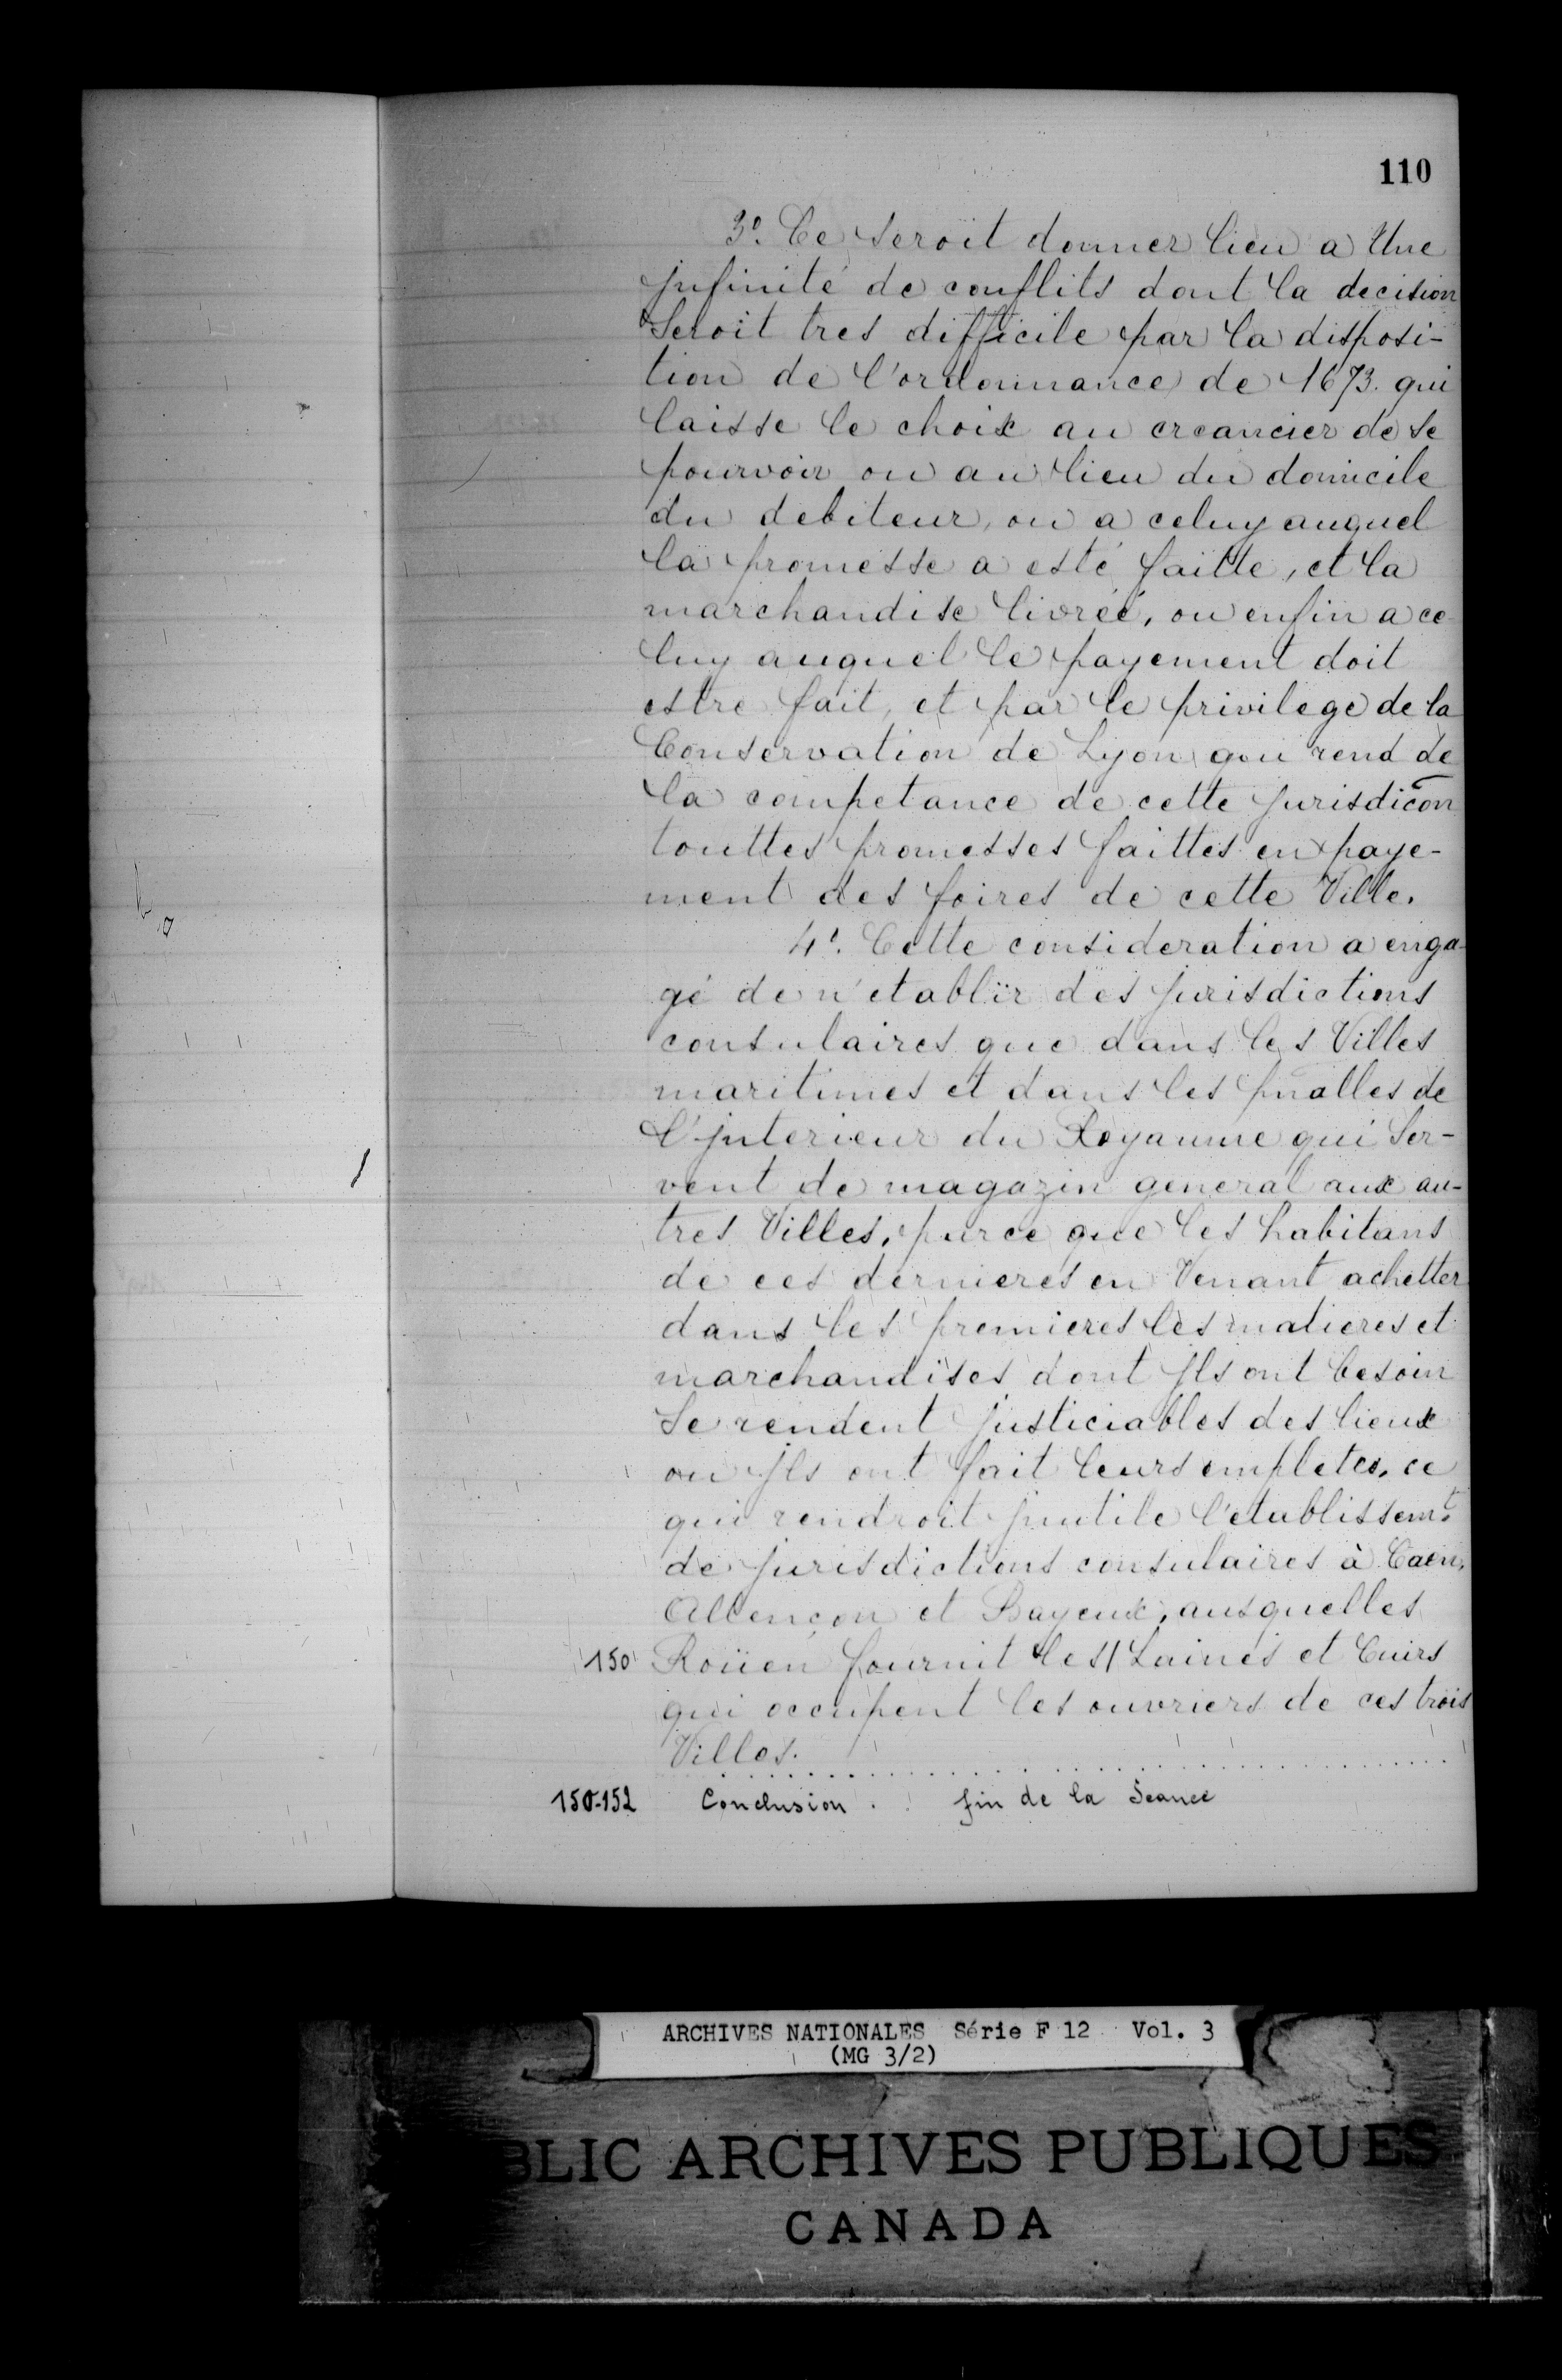 110
3º. Ce seroit donner lieu a Une
jnfinité de conflits dont la decision
Seroit tres difficile par la disposi-
tion de l'ordonnance de 1673. qui
laisse le choix au creancier de se
pourvoir ou au lieu du domicile
du debiteur, ou a celuy auquel
la promesse a esté faitte, et la
marchandise livréé, ou enfin a ce
luy auquel le payement doit
estre fait, et par le privilege de la
Conservation de Lyon qui rend de
la competance de cette jurisdicõn
touttes promesses faittes en paye-
ment des foires de cette Ville.
4º. Cette consideration a enga-
gé de n'etablir des jurisdictions
consulaires que dans les Villes
maritimes et dans les pñalles de
l'jnterieur du Royaume qui Ser-
vent de magazin general aux au-
tres Villes, parce que les habitans
de ces dernieres en Venant achetter
dans les premieres les matieres et
marchandises dont jls ont besoin
Se rendent justiciables des lieux
ou jls ont fait leurs empletes, ce
qui rendroit jnutile l'etablissemt.
de jurisdictions consulaires à Caen,
Allençon et Bayeux, ausquelles
150 Roüen fournit les/ Laines et Cuirs
qui occupent les ouvriers de ces trois
Villes.
150-152 Conclusion . . fin de la Séance
ARCHIVES NATIONALES Série F 12 Vol. 3
(MG 3/2)
BLIC ARCHIVES PUBLIQUES
CANADA